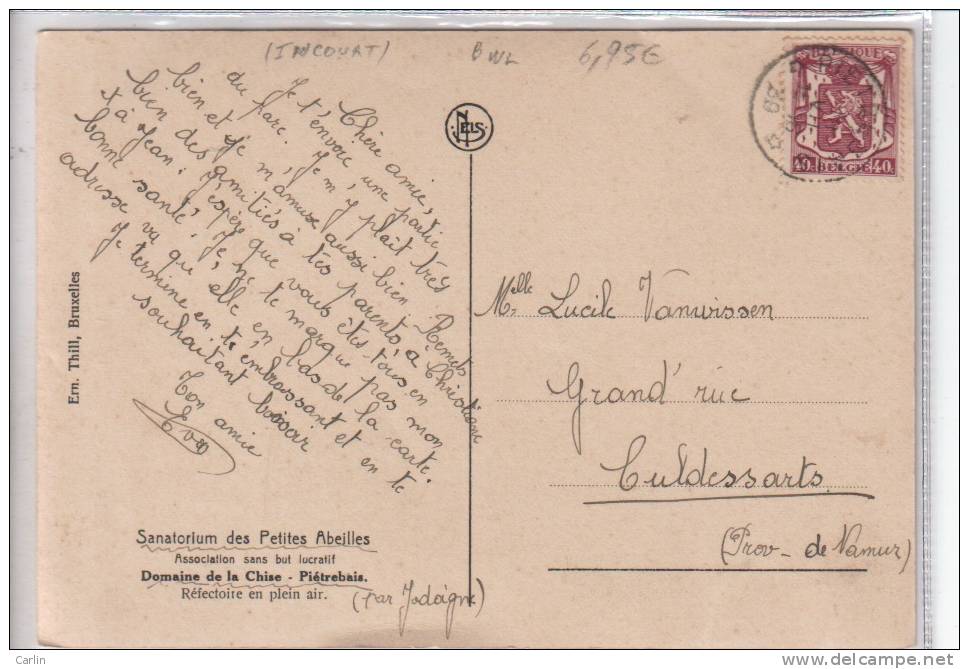 (INCOURT) BWL 6,95€
BELGIQUE
40c 40c
BELGIE
NELS
Chère amie,
Je t'envoie une partie
du parc. Je m'y plaît très
bien et je m'amuse aussi bien. Remets
bien des amitiés à tes parents, à Christiane
et à Jean. J'espère que vous êtes tous en
bonne santé. Je ne te marque pas mon
adresse vu que elle en bas de la carte.
Je termine en t'embrassant et en te
souhaitant bonsoir
Ton amie
Eva
Ern. Thill, Bruxelles
Melle Lucile Vanwissen
Grand'rue
Culdessarts
(Prov- de Namur)
Sanatorium des Petites Abeilles
Association sans but lucratif
Domaine de la Chise - Piétrebais.
Réfectoire en plein air.
(par Jodoigne)
Carlin
delcampe.net